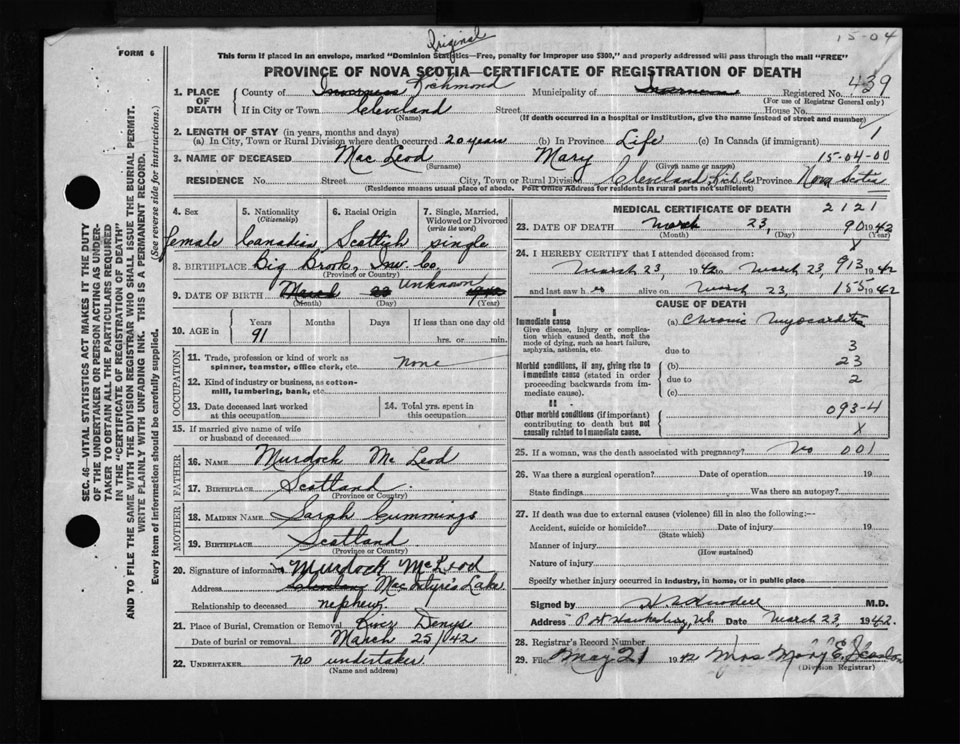 15-04
Original
FORM 6
This form if placed in an envelope, marked "Dominion Statistics—Free, penalty for improper use $300," and properly addressed will pass through the mail "FREE"
PROVINCE OF NOVA SCOTIA—CERTIFICATE OF REGISTRATION OF DEATH
439
1. PLACE OF DEATH
County of Inverness Richmond Municipality of Inverness Registered No.
(For use of Registrar General only)
If in City or Town Cleveland Street House No.
(Name) (If death occurred in a hospital or institution, give the name instead of street and number)
2. LENGTH OF STAY (in years, months and days)
(a) In City, Town or Rural Division where death occurred 20 years (b) In Province Life (c) In Canada (if immigrant) 1
3. NAME OF DECEASED Mac Leod Mary 15-04-00
(Surname) (Given name or names)
RESIDENCE No. Street City, Town or Rural Division Cleveland Rich Co Province Nova Scotia
(Residence means usual place of abode. Post Office Address for residents in rural parts not sufficient)
SEC. 46—VITAL STATISTICS ACT MAKES IT THE DUTY
OF THE UNDERTAKER OR PERSON ACTING AS UNDER-
TAKER TO OBTAIN ALL THE PARTICULARS REQUIRED
IN THE "CERTIFICATE OF REGISTRATION OF DEATH"
AND TO FILE THE SAME WITH THE DIVISION REGISTRAR WHO SHALL ISSUE THE BURIAL PERMIT.
WRITE PLAINLY WITH UNFADING INK. THIS IS A PERMANENT RECORD.
Every item of information should be carefully supplied. (See reverse side for instructions.)
4. Sex 5. Nationality 6. Racial Origin 7. Single, Married,
(Citizenship) Widowed or Divorced
(write the word)
female Canadian Scottish single
8. BIRTHPLACE Big Brook, Inv. Co.
(Province or Country)
Unknown
9. DATE OF BIRTH March 23 1942
(Month) (Day) (Year)
10. AGE in Years Months Days If less than one day old
91 hrs. or min.
OCCUPATION
11. Trade, profession or kind of work as
spinner, teamster, office clerk, etc. none
12. Kind of industry or business, as cotton-
mill, lumbering, bank, etc.
13. Date deceased last worked 14. Total yrs. spent in
at this occupation this occupation
15. If married give name of wife
or husband of deceased
FATHER
16. NAME Murdock Mc Leod
17. BIRTHPLACE Scotland
(Province or Country)
MOTHER
18. MAIDEN NAME Sarah Cummings
19. BIRTHPLACE Scotland
(Province or Country)
20. Signature of informant Murdock McLeod
Address Cleveland MacIntyre's Lake
Relationship to deceased nephew
21. Place of Burial, Cremation or Removal River Denys
Date of burial or removal March 25/42
22. UNDERTAKER no undertaker
MEDICAL CERTIFICATE OF DEATH 2121
23. DATE OF DEATH March 23, 90 1942
(Month) (Day) (Year)
X
24. I HEREBY CERTIFY that I attended deceased from:
March 23, 1942 to March 23, 913 1942
and last saw her alive on March 23, 155 1942
CAUSE OF DEATH
I
Immediate cause (a) Chronic Myocarditis
Give disease, injury or complica-
tion which caused death, not the
mode of dying, such as heart failure,
asphyxia, asthenia, etc. due to 3
Morbid conditions, if any, giving rise to (b) 23
immediate cause (stated in order due to 2
proceeding backwards from im-
mediate cause). (c)
II
Other morbid conditions (if important) 093-4
contributing to death but not
causally related to immediate cause. X
25. If a woman, was the death associated with pregnancy? No 001
26. Was there a surgical operation? Date of operation 19
State findings Was there an autopsy?
27. If death was due to external causes (violence) fill in also the following:—
Accident, suicide or homicide? Date of injury 19
(State which)
Manner of injury
(How sustained)
Nature of injury
Specify whether injury occurred in industry, in home, or in public place
Signed by M.D.
Address Port Hawkesbury, NS Date March 23, 1942.
28. Registrar's Record Number
29. Filed May 21 1942 Mrs Mary E.
(Division Registrar)